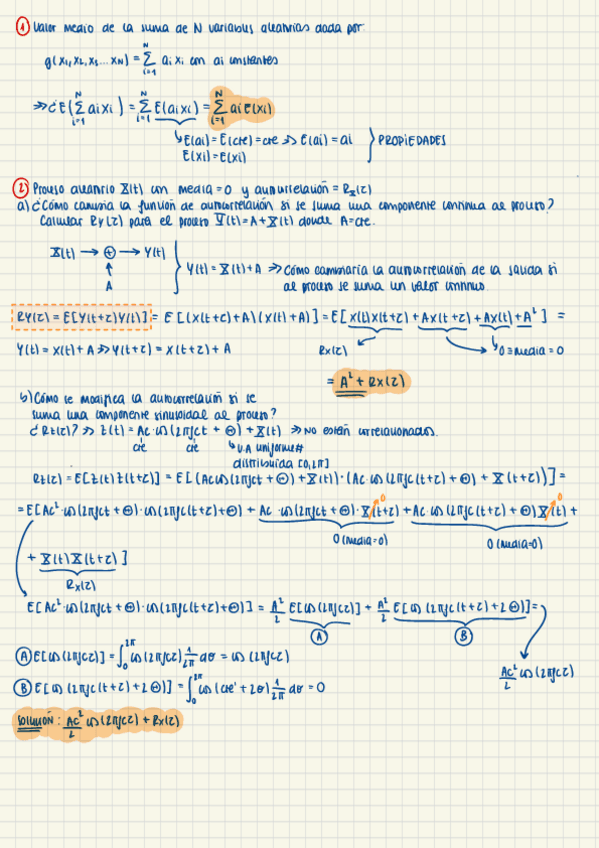 ① Valor medio de la suma de N variables aleatorias dada por:
g(x₁, x₂, x₃ ... x_N) = Σ_{i=1}^{N} ai xi con ai constantes
⇒ ¿E(Σ_{i=1}^{N} ai xi) = Σ_{i=1}^{N} E(ai xi) = Σ_{i=1}^{N} ai E(xi)
↳ E(ai) = E(cte) = cte ⇒ E(ai) = ai } PROPIEDADES
E(xi) = E(xi)
② Proceso aleatorio X(t) con media = 0 y autocorrelación = Rx(τ)
a) ¿Cómo cambia la función de autocorrelación si se suma una componente continua al proceso?
Calcular Ry(τ) para el proceso Y(t) = A + X(t) donde A = cte.
X(t) → ⊕ → Y(t)
↑
A
} Y(t) = X(t) + A ⇒ Cómo cambiaría la autocorrelación de la salida si
al proceso se suma un valor continuo
Ry(τ) = E[Y(t+τ) Y(t)] = E[(X(t+τ) + A)(X(t) + A)] = E[X(t)X(t+τ) + AX(t+τ) + AX(t) + A²] =
Y(t) = X(t) + A ⇒ Y(t+τ) = X(t+τ) + A
Rx(τ)
0 ≡ media = 0
= A² + Rx(τ)
b) ¿Cómo se modifica la autocorrelación si se
suma una componente sinusoidal al proceso?
¿Rz(τ)? ⇒ Z(t) = Ac cos(2πfct + Θ) + X(t) ⇒ No están correlacionados.
cte cte ↳ V.A uniforme#
distribuida [0, 2π]
Rz(τ) = E[Z(t) Z(t+τ)] = E[(Ac cos(2πfct + Θ) + X(t)) · (Ac cos(2πfc(t+τ) + Θ) + X(t+τ))] =
= E[Ac² · cos(2πfct + Θ) · cos(2πfc(t+τ) + Θ) + Ac cos(2πfct + Θ) · X(t+τ) + Ac cos(2πfc(t+τ) + Θ) X(t) +
0 0
0 (media=0)
0 (media=0)
+ X(t) X(t+τ)]
Rx(τ)
E[Ac² · cos(2πfct + Θ) · cos(2πfc(t+τ) + Θ)] = A²/2 E[cos(2πfcτ)] + A²/2 E[cos(2πfc(t+τ) + 2Θ)] =
Ⓐ Ⓑ
Ⓐ E[cos(2πfcτ)] = ∫₀^{2π} cos(2πfcτ) 1/2π dθ = cos(2πfcτ)
Ac²/2 cos(2πfcτ)
Ⓑ E[cos(2πfc(t+τ) + 2Θ)] = ∫₀^{2π} cos(cte' + 2θ) 1/2π dθ = 0
SOLUCIÓN: Ac²/2 cos(2πfcτ) + Rx(τ)